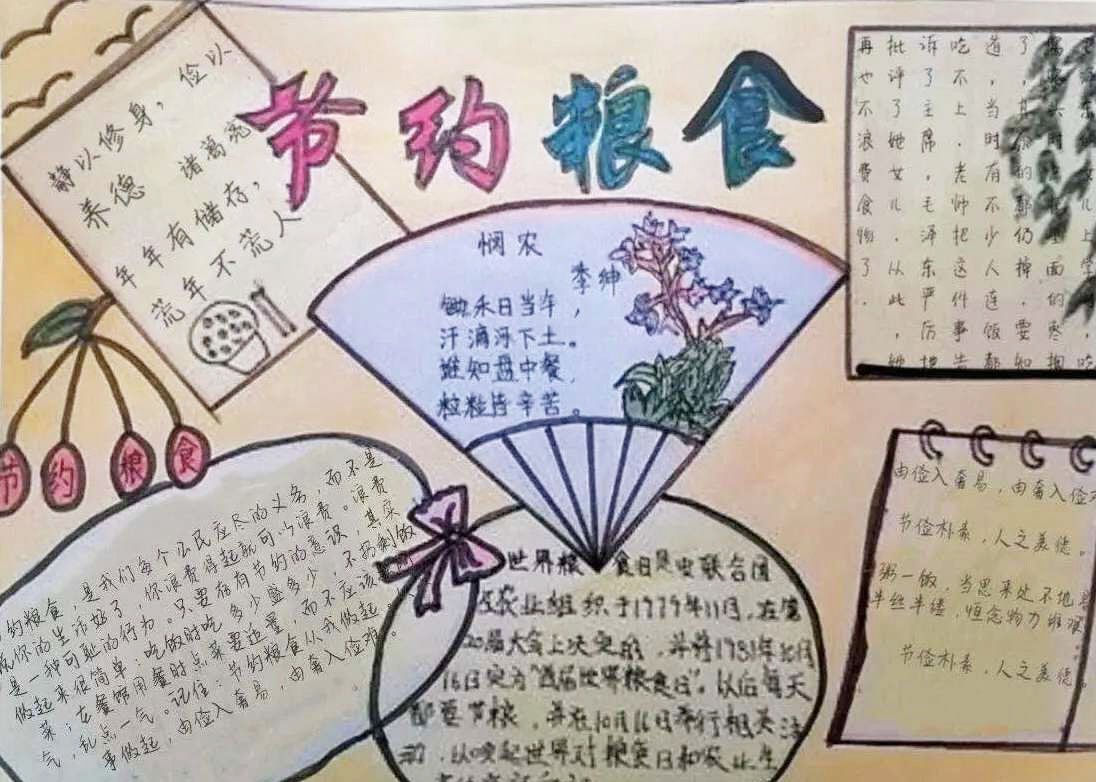 节约粮食
静以修身，俭以
养德 诸葛亮
年年有储存，
荒年不荒人
节约粮食
悯农
李绅
锄禾日当午，
汗滴禾下土。
谁知盘中餐，
粒粒皆辛苦。
再批诉吃道了
也评了不，
不了主上当其
浪她席．时
费女，老有的
食儿毛帅不都
物．泽把少仍
了从东这人掉面
．此严件连，的
，厉事饭要枣
她地告都知
由俭入奢易，由奢入俭
节俭朴素，人之美德。
粥一饭，当思来处不地
半丝半缕，恒念物力维艰
节俭朴素，人之美德。
约粮食，是我们每个公民应尽的义务，而不是
你的生活好了，你浪费得起就可以浪费。浪费
是一种可耻的行为。只要存有节约的意识，其实
做起来很简单：吃饭时吃多少盛多少，不扔剩饭
菜；在餐厅用餐时点菜要适量，而不应该
气，乱点一气。记住：节约粮食从我做起。从
事做起，由俭入奢易，由奢入俭难。
世界粮食日是 联合国
农业组织于1979年11月，在第
20届大会上决定的，并将1981年10月
16日定为“首届世界粮食日”。以后每天
都要节粮，并在10月16日举行相关活
动，以唤起世界对粮食日和农业生